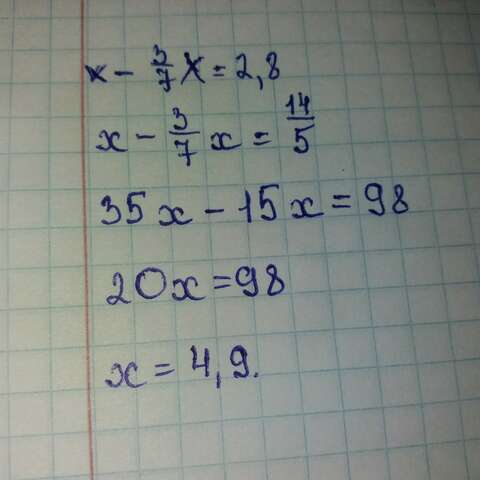 x - 3/7 x = 2,8
x - 3/7 x = 14/5
35x - 15x = 98
20x = 98
x = 4,9.